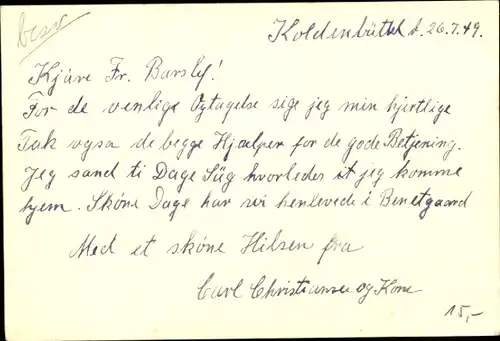 besv
Koldenbüttel d. 26.7.49.
Kjäre Fr. Barslef!
For de venlige Ogtagelse sige jeg min hjertlige
Tak ogsa de begge Hjælper for de gode Betjening.
Jeg sand ti Dage Süg hvorledes at jeg komme
hjem. Sköne Dage har wi henlevede i Benetgaard
Med et sköne Hilsen fra
Carl Christiansen og Kone
15,-